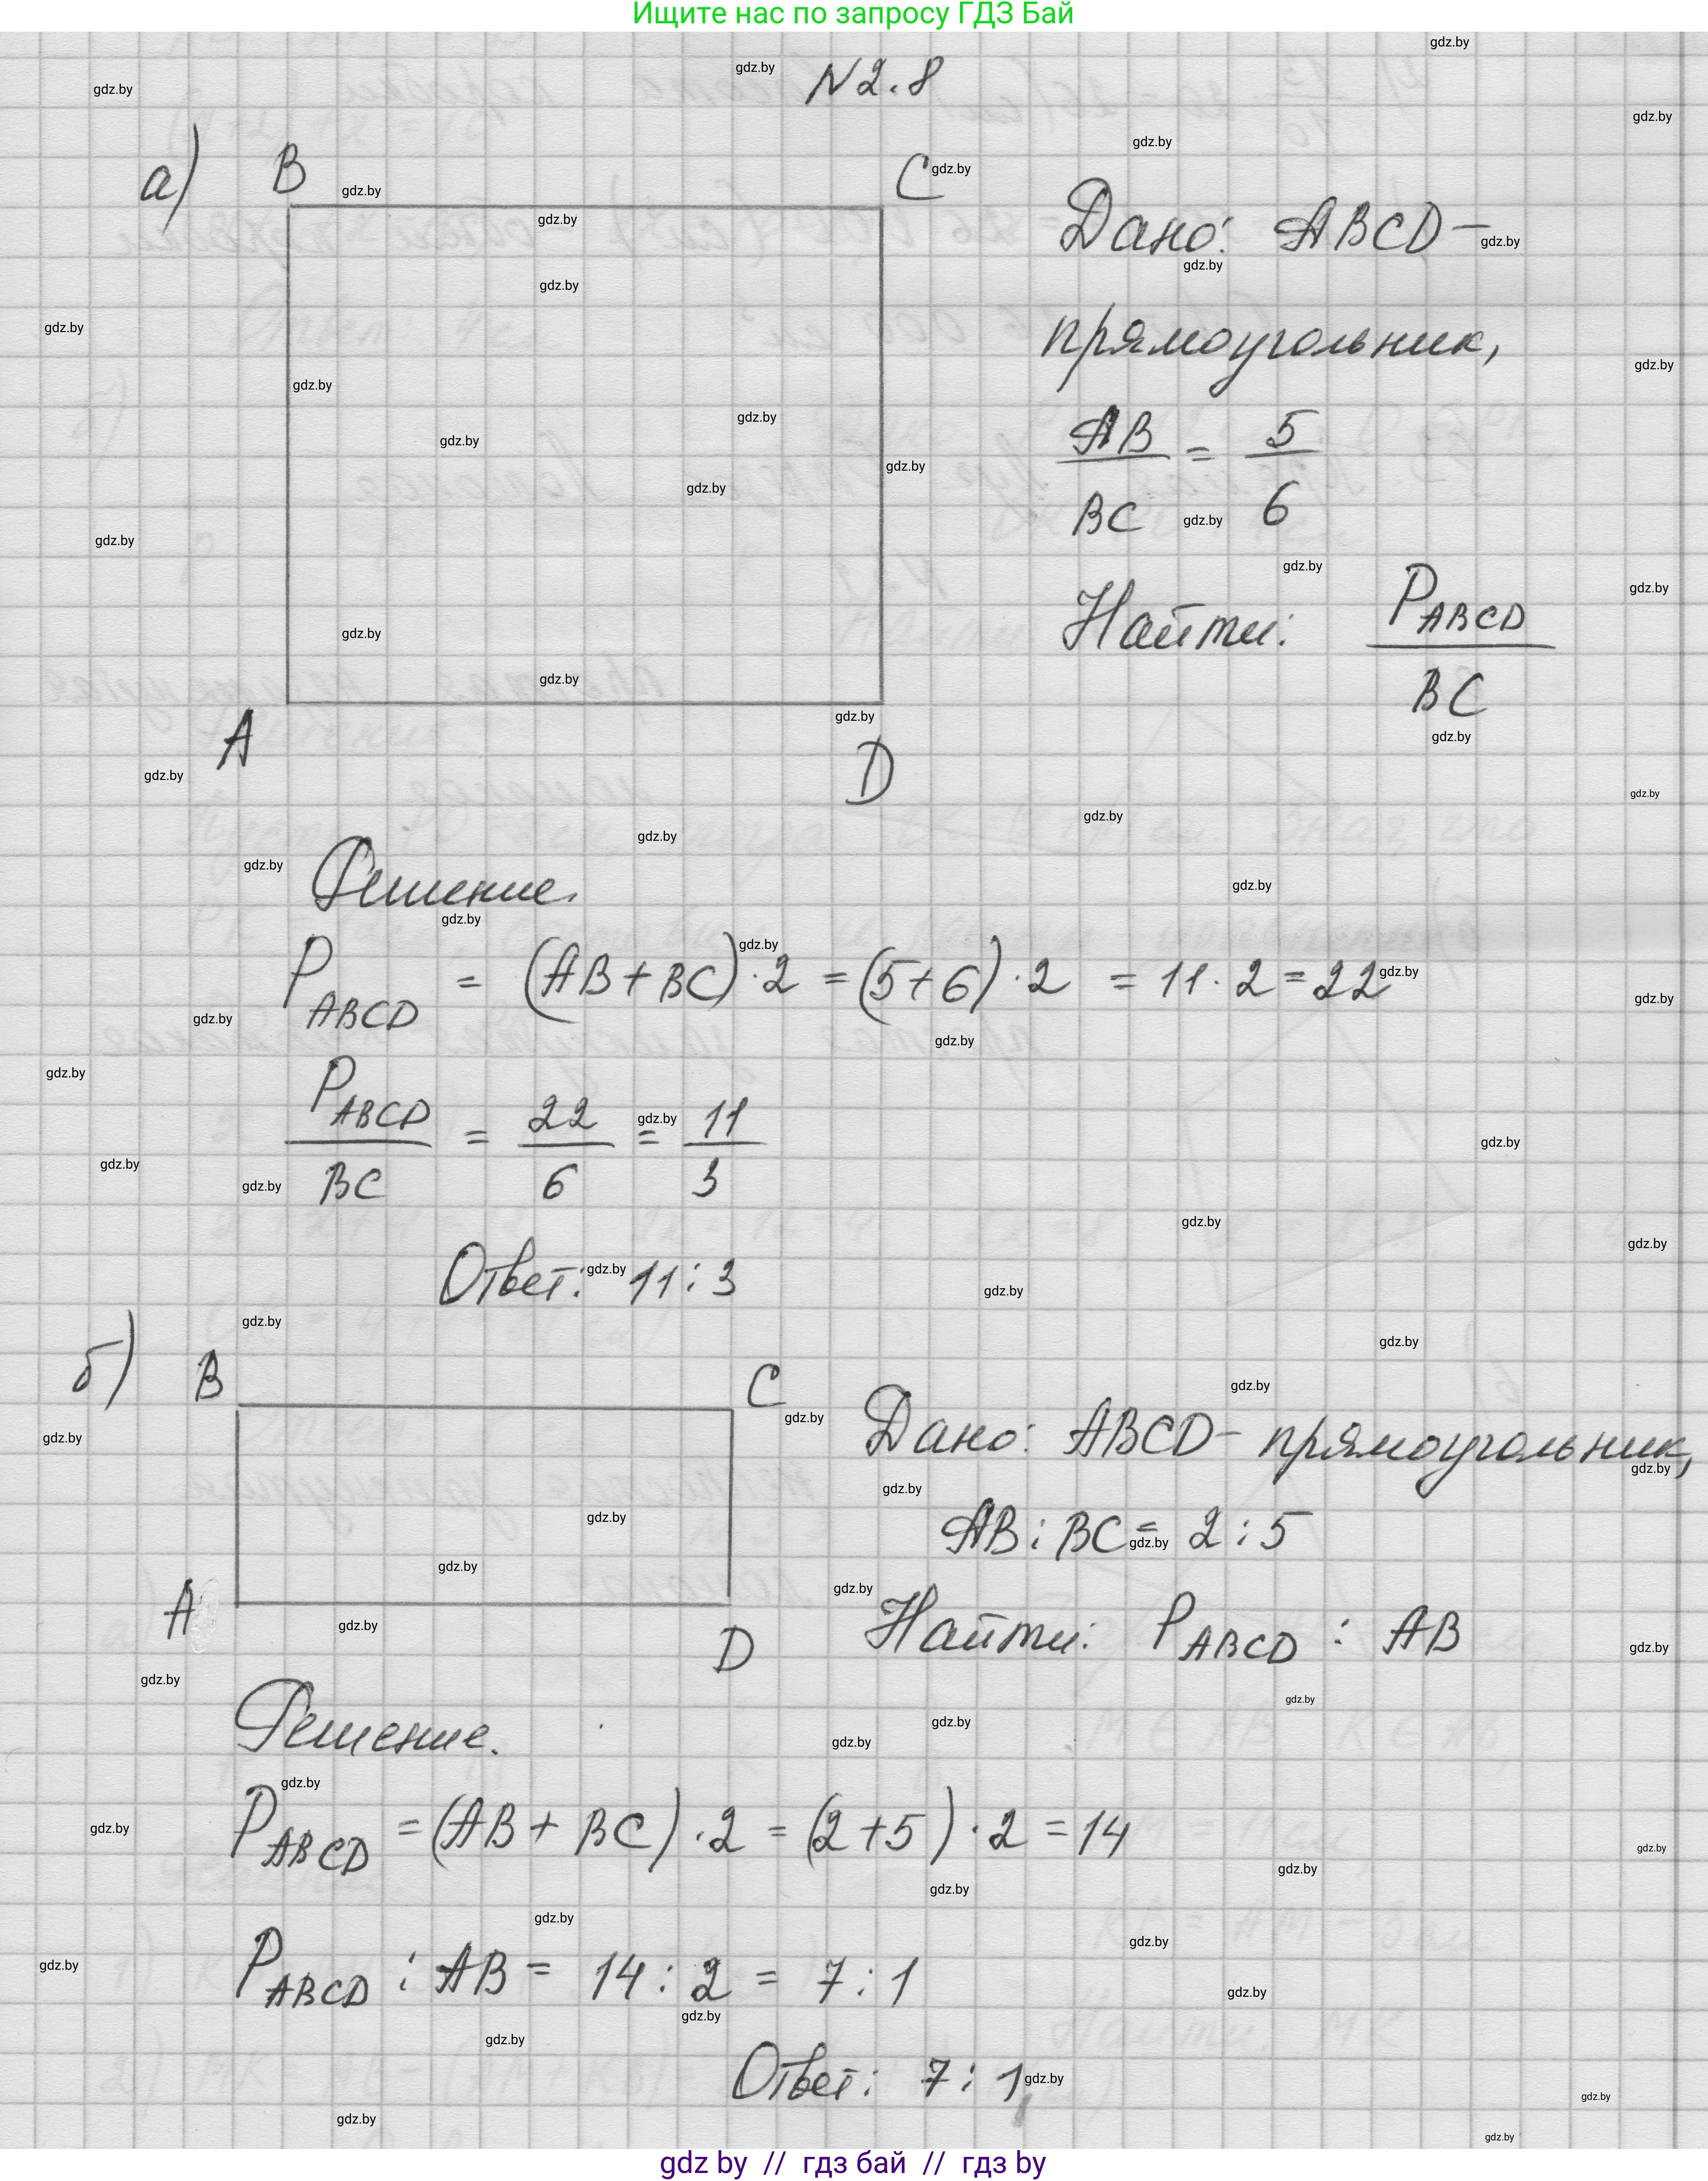 Ищите нас по запросу ГДЗ Бай
N 2.8
а)
B
C
A
D
Дано: ABCD –
прямоугольник,
AB/BC = 5/6
Найти: P_ABCD/BC
Решение.
P_ABCD = (AB + BC) · 2 = (5 + 6) · 2 = 11 · 2 = 22
P_ABCD/BC = 22/6 = 11/3
Ответ: 11 : 3
б)
B
C
A
D
Дано: ABCD – прямоугольник,
AB : BC = 2 : 5
Найти: P_ABCD : AB
Решение.
P_ABCD = (AB + BC) · 2 = (2 + 5) · 2 = 14
P_ABCD : AB = 14 : 2 = 7 : 1
Ответ: 7 : 1
gdz.by
gdz by // гдз бай // гдз by